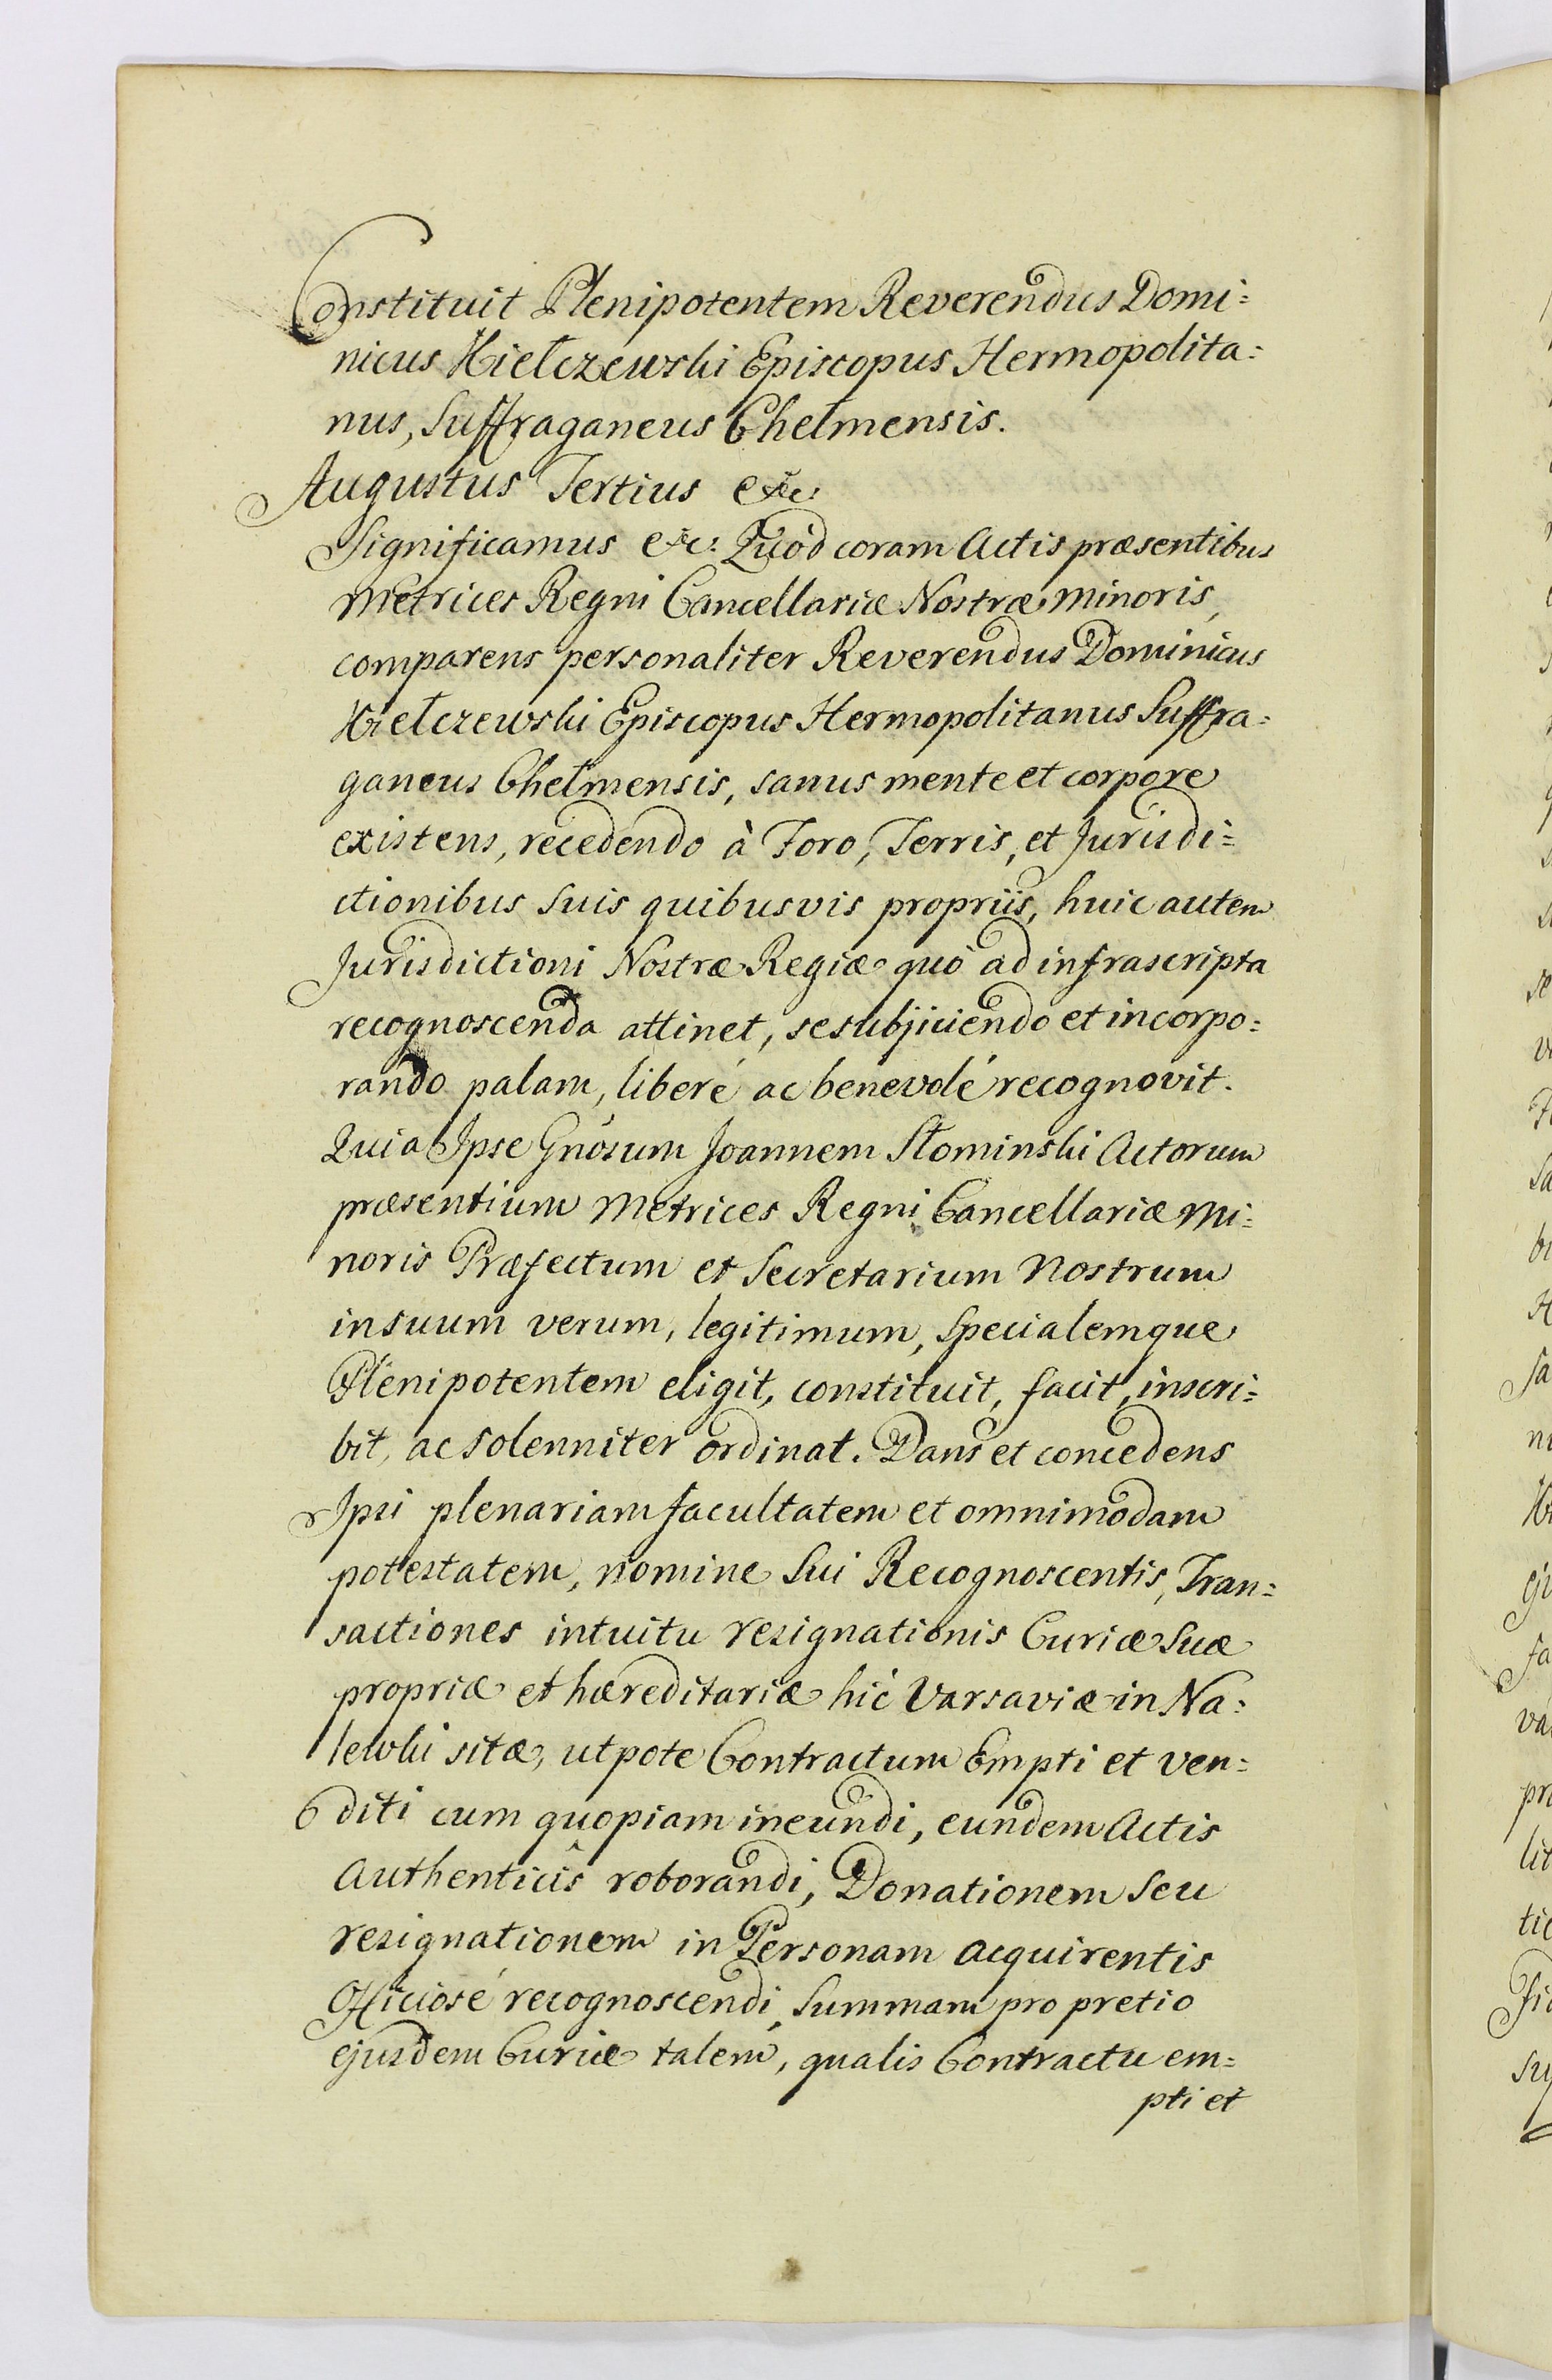 Constituit Plenipotentem Reverendus Domi=
nicus Kiełczewski Episcopus Hermopolita=
nus, Suffraganeus Chełmensis.
Augustus Tertius &c:
Significamus &c: Quòd coram Actis præsentibus
Metrices Regni Cancellariæ Nostræ Minoris,
comparens personaliter Reverendus Dominicus
Kiełczewski Episcopus Hermopolitanus Suffra=
ganeus Chełmensis, sanus mente et corpore
existens, recedendo à Foro, Terris, et Jurisdi=
ctionibus suis quibusvis propriis, huic autem
Jurisdictioni Nostræ Regiæ quò ad infrascripta
recognoscenda attinet, se subjiciendo et incorpo=
rando palam, liberé ac benevolé recognovit.
Quia Ipse Gnosum Joannem Słominski Actorum
præsentium Metrices Regni Cancellariæ Mi=
noris Præfectum et Secretarium Nostrum
in suum verum, legitimum, Specialemque
Plenipotentem eligit, constituit, facit, inscri=
bit, ac solenniter ordinat. Dans et concedens
Ipsi plenariam facultatem et omnimodam
potestatem, nomine Sui Recognoscentis, Tran=
sactiones intuitu resignationis Curiæ Suæ
propriæ et hæreditariæ hic Varsaviæ in Na=
lewki sitæ, utpote Contractum Empti et Ven=
diti cum quopiam ineundi, eundem Actis
Authenticis roborandi, Donationem seu
resignationem in Personam acquirentis
Officiosé recognoscendi, Summam pro pretio
ejusdem Curiæ talem, qualis Contractu em=
pti et